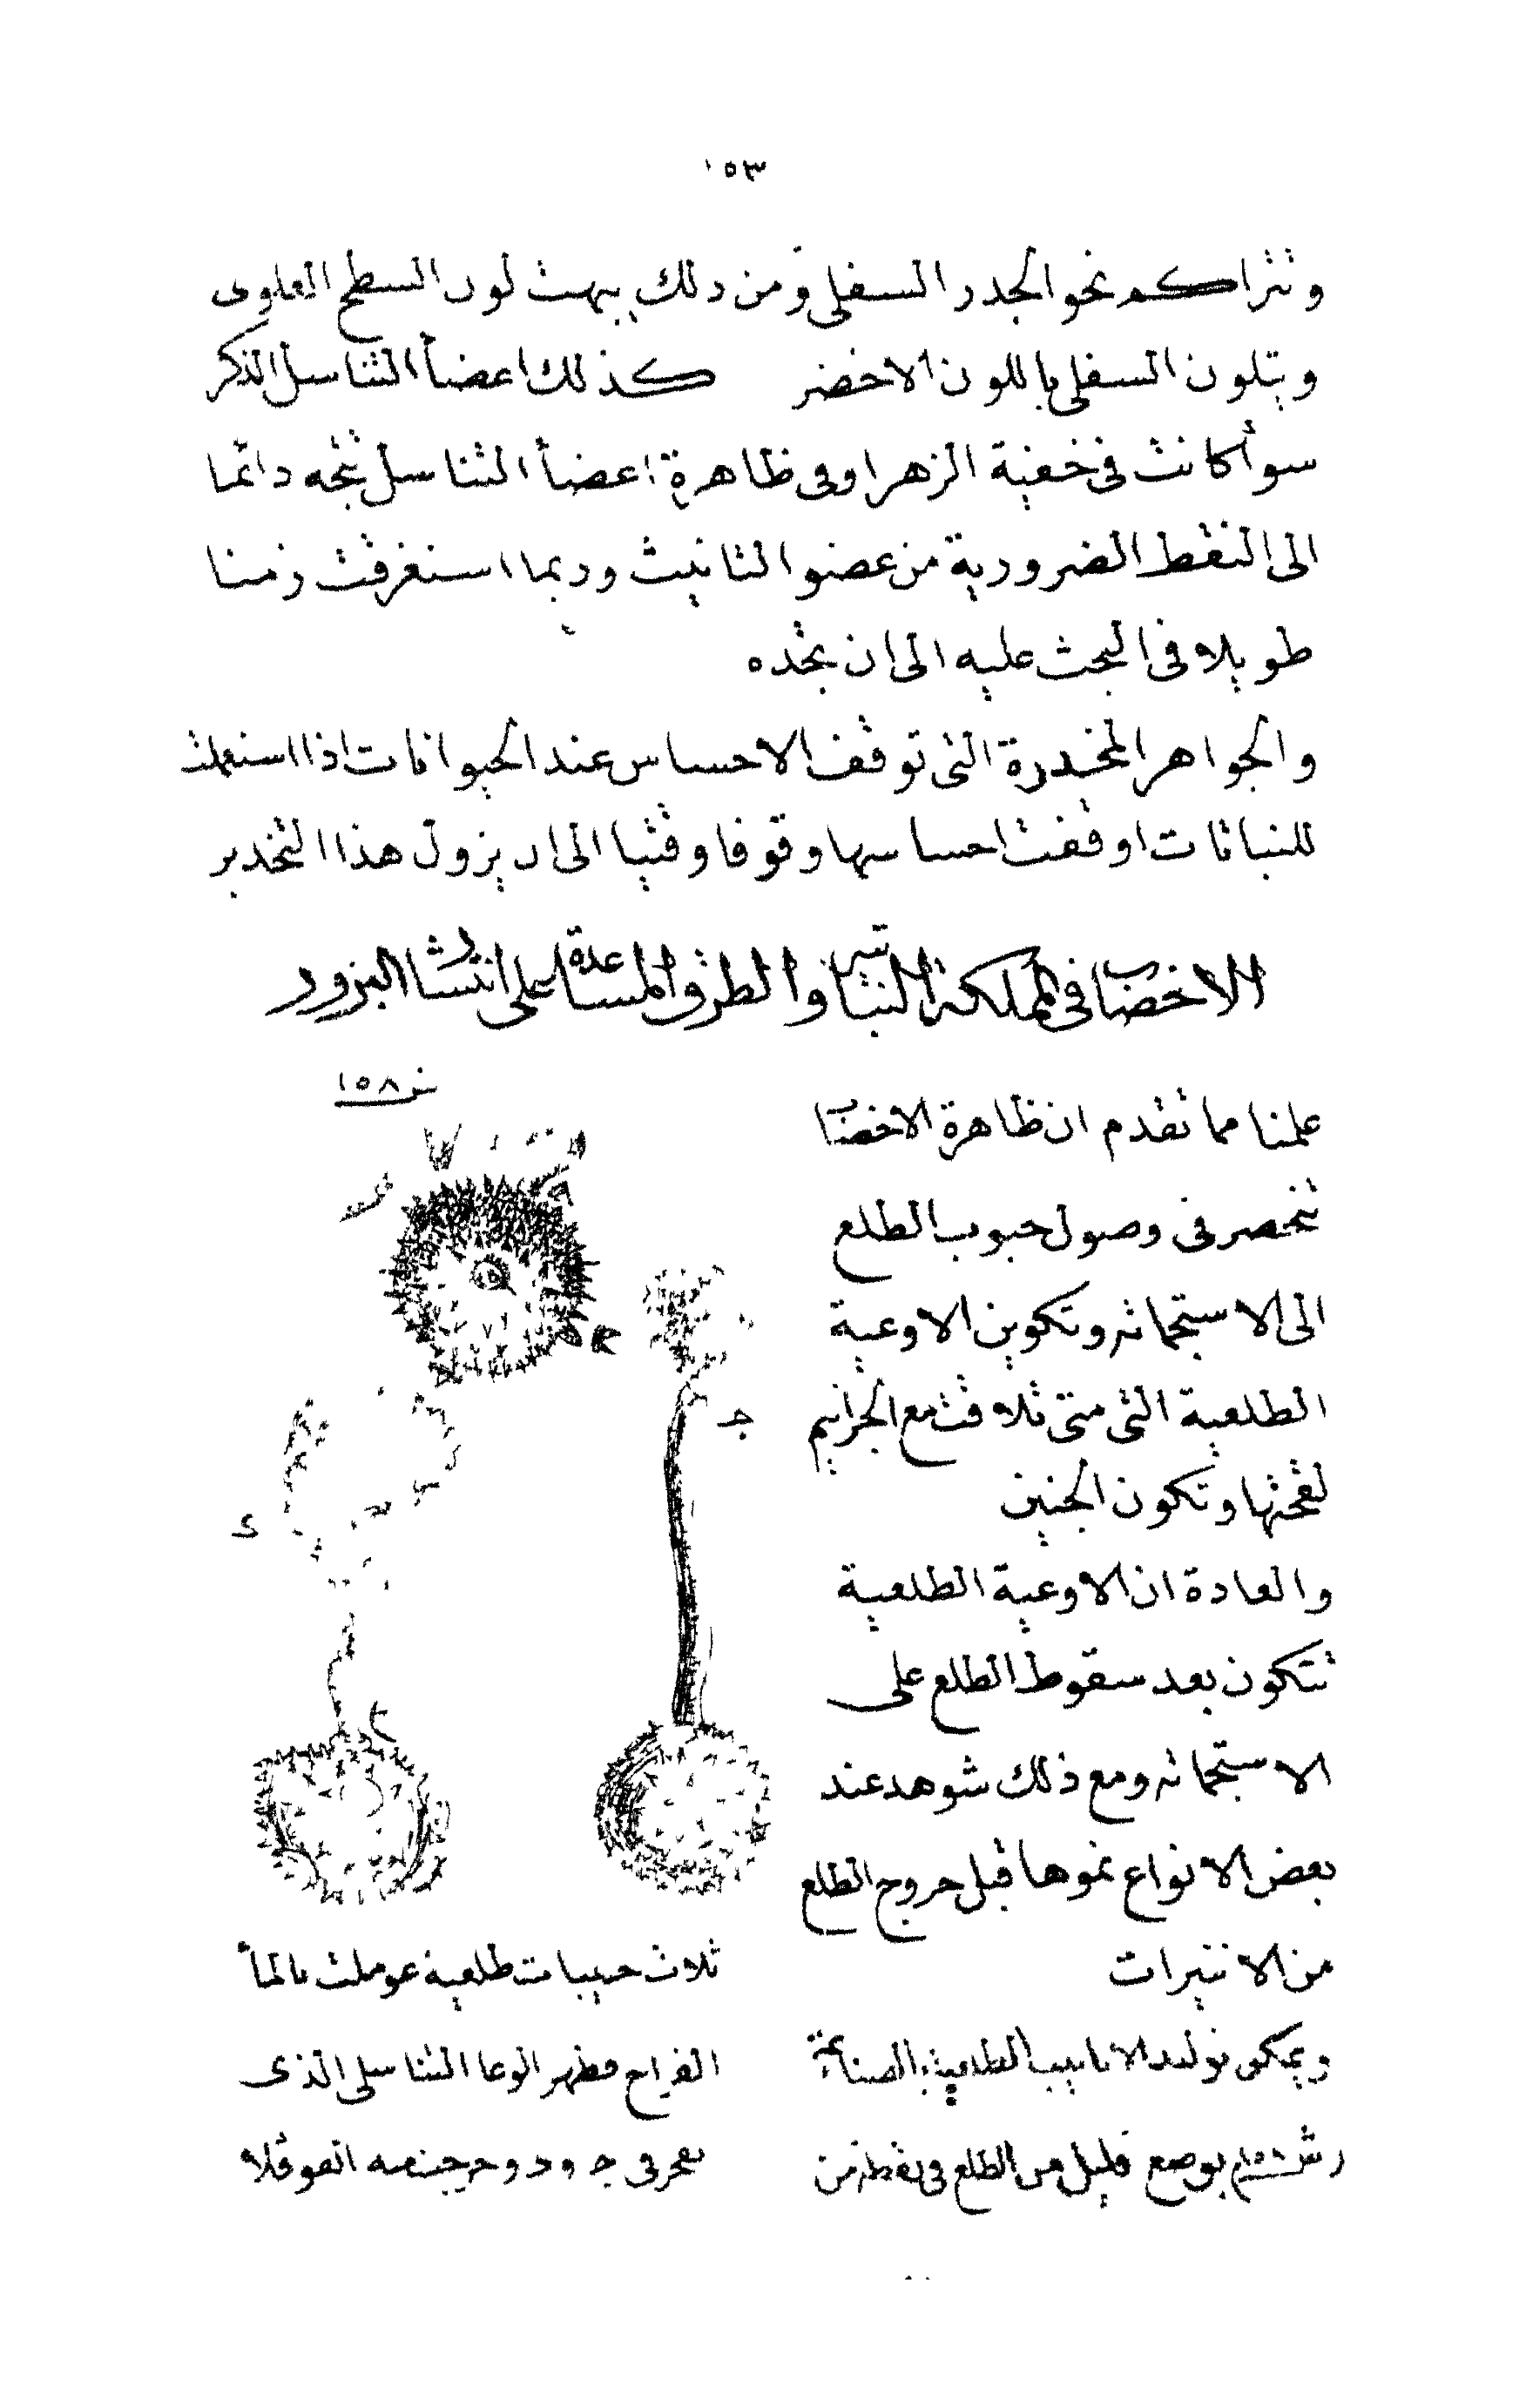 ١٥٣
وتتراكم نحو الجدر السفلى ومن ذلك يبهت لون السطح العلوى
ويتلون السفلى باللون الاخضر كذلك اعضأ التناسل الذكر
سوأ كانت فى خفية الزهر اوفى ظاهرة اعضأ التناسل تتجه دائما
الى النقط الضرورية من عضو التانيث وربما استغرقت زمنا
طويلا فى البحث عليه الى ان تجده
والجواهر المخدرة التى توقف الاحساس عند الحيوانات اذا استعملت
للنباتات اوقفت احساسها وقوفا وقتيا الى ان يزول هذا التخدير
الاخضاب فى المملكة النباتية والطرق المساعدة على انتشار البزور
ش ١٥٨
علمنا مما تقدم ان ظاهرة الاخضاب
تنحصر فى وصول حبوب الطلع
الى الاستجماته وتكوين الاوعية
الطلعية التى متى تلاقت مع الجراثيم
لقحتها وتكون الجنين
والعادة ان الاوعية الطلعية
تتكون بعد سقوط الطلع على
الاستجماته ومع ذلك شوهد عند
بعض الانواع نموها قبل خروج الطلع
من الانتيرات
ويمكن توليد الانابيب الطلعية بالصناعة
(ش ١٥٨) بوضع قليل من الطلع فى نقطة من
جـ
د
ثلاث حبيبات طلعية عوملت بالمأ
القراح فظهر الوعا التناسلى الذى
جـ ود وخرجت منه الفوفلا